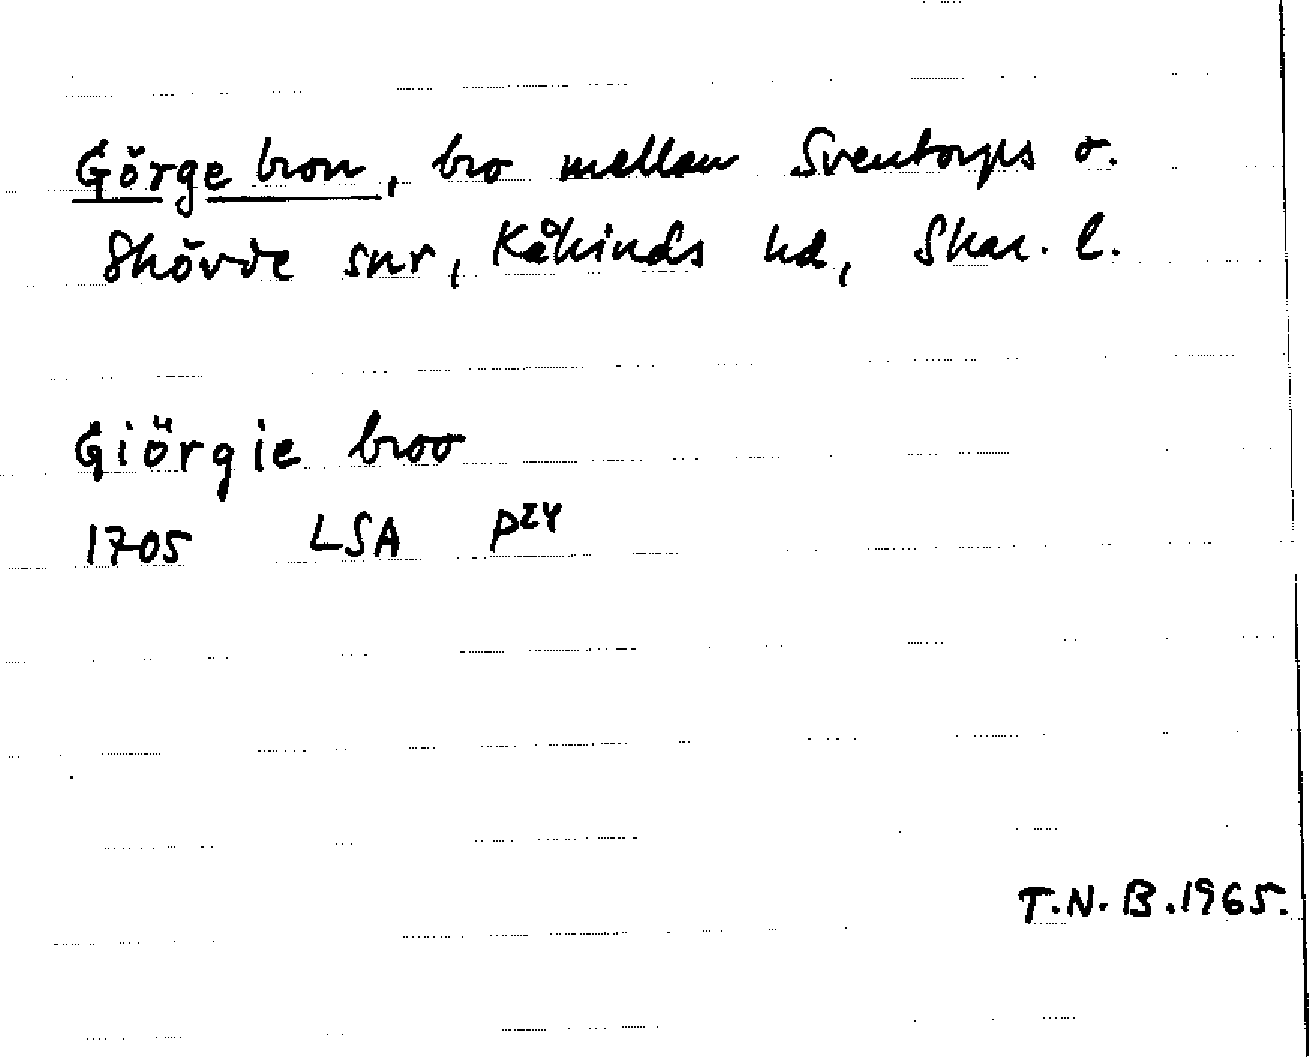 Görge bron, bro mellan Sventorps o.
Skövde snr, Kåkinds hd, Skar. l.
Giörgie broo
1705 LSA P24
T.N.B.1965.